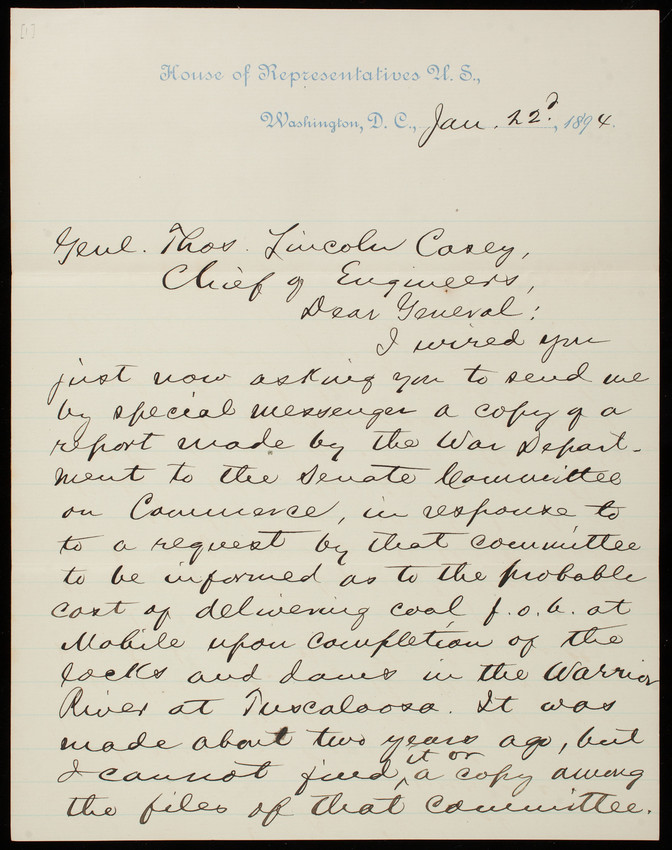 [1]
House of Representatives U. S.,
Washington, D. C., Jan. 22d, 1894.
Genl. Thos. Lincoln Casey,
Chief of Engineers,
Dear General:
I wired you
just now asking you to send me
by special messenger a copy of a
report made by the War Depart-
ment to the Senate Committee
on Commerce, in response to
to a request by that committee
to be informed as to the probable
cost of delivering coal f.o.b. at
Mobile upon completion of the
locks and dams in the Warrior
River at Tuscaloosa. It was
made about two years ago, but
it or
I cannot find, ^ a copy among
the files of that committee.